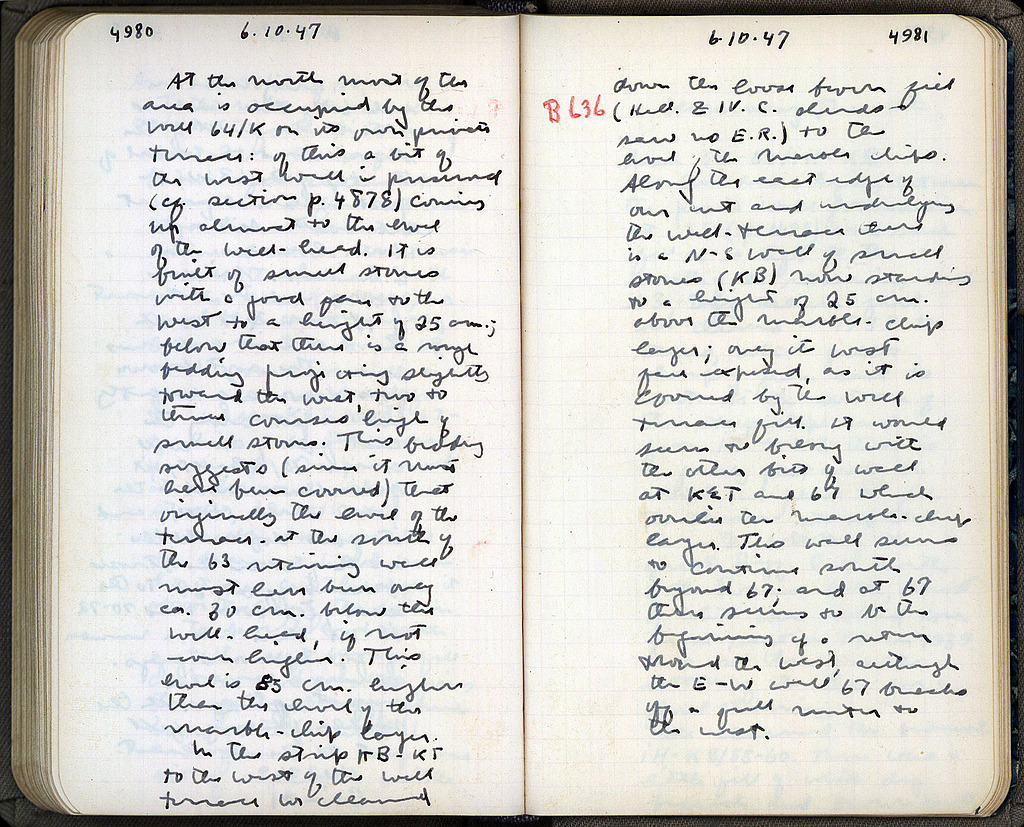 4980 6.10.47
At the north most of the
area is occupied by the
well 64/K on its own private
terrace: of this a bit of
the west wall is preserved
(cf. section p. 4878) coming
up almost to the level
of the well-head. It is
built of small stones
with a good face to the
west to a height of 25 cm.;
below that there is a rough
bedding projecting slightly
toward the west, two to
three courses high of
small stones. This bedding
suggests (since it must
have been covered) that
originally the level of the
terrace at the south of
the 63 retaining wall
must have been only
ca. 30 cm. below the
well-head, if not
even higher. This
level is 85 cm. higher
than the level of the
marble-chip layer.
In the strip HB-KT
to the west of the well
terrace we cleaned
6.10.47 4981
down the loose brown fill
B636 (Hell. & IV. C. sherds
saw no E.R.) to the
level of the marble chips.
Along the east edge of
our cut and underlying
the well-terrace there
is a N-S wall of small
stones (KB) now standing
to a height of 25 cm.
above the marble-chip
layer; only its west
face exposed, as it is
covered by the well
terrace fill. It would
seem to belong with
the other bits of wall
at KET and 67 which
overlie the marble-chip
layer. This wall seems
to continue south
beyond 67, and at 67
there seems to be the
beginning of a return
toward the west, although
the E-W wall 67 breaks
off a full meter to
the west.